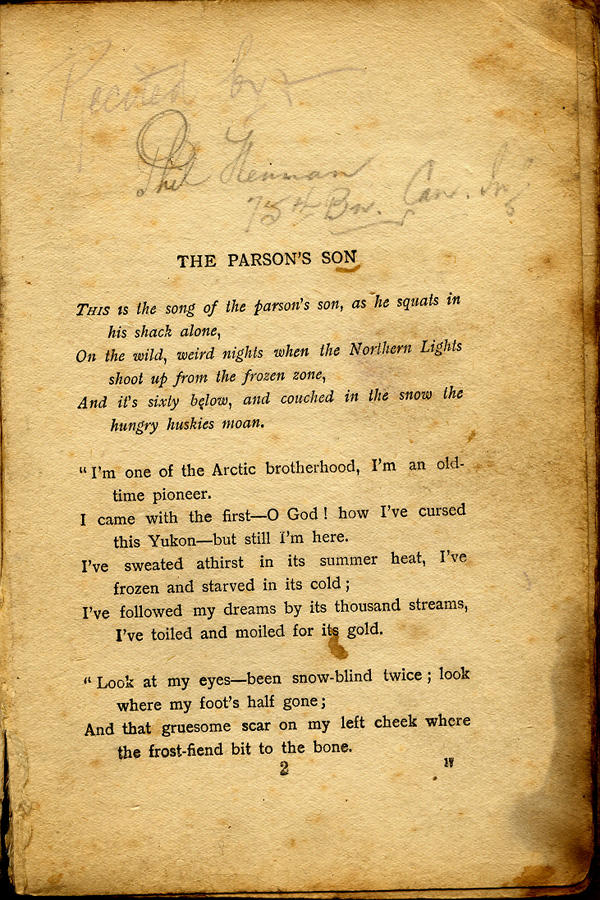 Recited by
Phil Henman
75th Bn. Can. Inf
THE PARSON'S SON
THIS is the song of the parson's son, as he squats in
his shack alone,
On the wild, weird nights when the Northern Lights
shoot up from the frozen zone,
And it's sixty below, and couched in the snow the
hungry huskies moan.
"I'm one of the Arctic brotherhood, I'm an old-
time pioneer.
I came with the first—O God! how I've cursed
this Yukon—but still I'm here.
I've sweated athirst in its summer heat, I've
frozen and starved in its cold;
I've followed my dreams by its thousand streams,
I've toiled and moiled for its gold.
"Look at my eyes—been snow-blind twice; look
where my foot's half gone;
And that gruesome scar on my left cheek where
the frost-fiend bit to the bone.
2
17